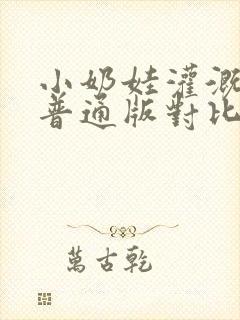 小奶娃灌溉
普通版對比
萬古乾